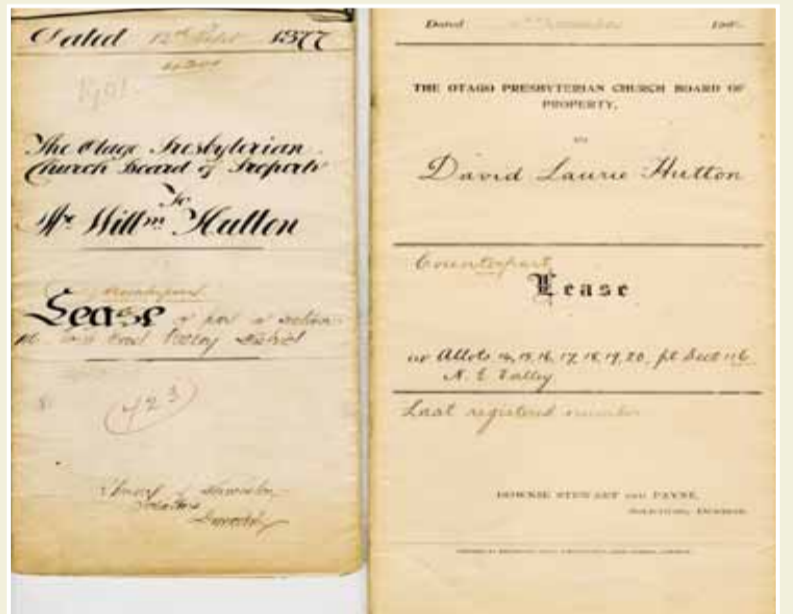 Dated 12th Sept 1877
The Otago Presbyterian
Church Board of Property
To
Mr Willm Hutton
Lease of part of section
North East Valley District
423
Solicitors
Dunedin
Dated
THE OTAGO PRESBYTERIAN CHURCH BOARD OF
PROPERTY,
TO
David Laurie Hutton
Counterpart
Lease
of Allots 14, 15, 16, 17, 18, 19, 20, pt Sect
N. E. Valley
Last registered number
DOWNIE STEWART AND PAYNE,
SOLICITORS, DUNEDIN